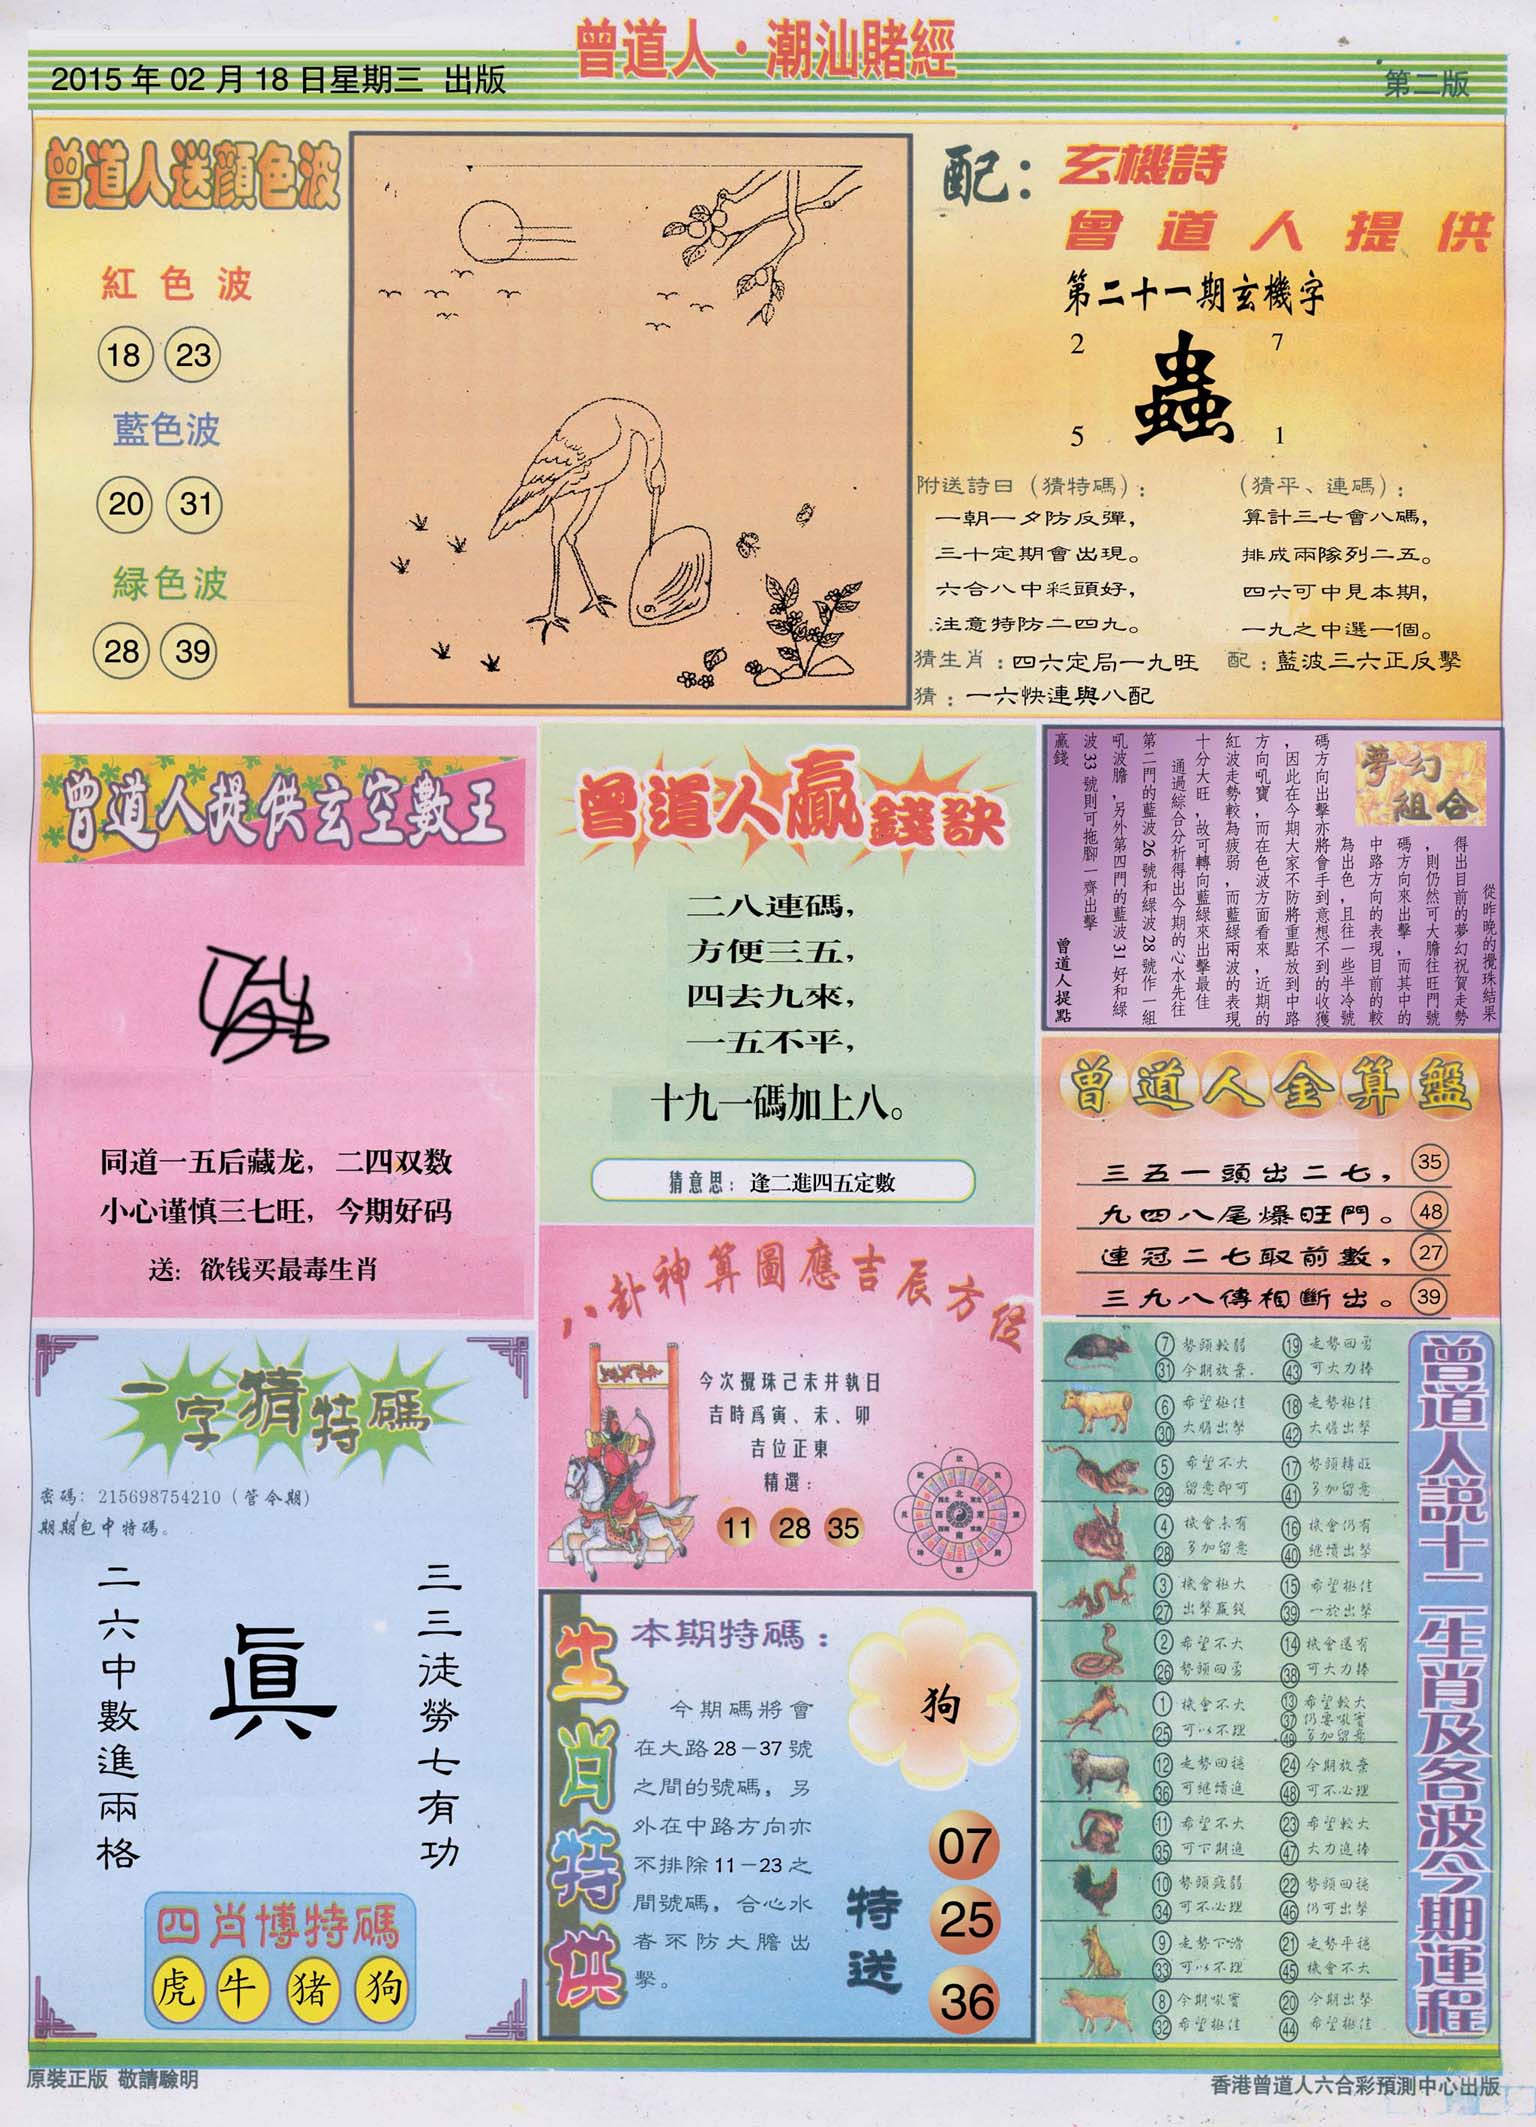 曾道人·潮汕賭經
2015 年 02 月 18 日星期三 出版
第二版
曾道人送顔色波
紅色波
18 23
藍色波
20 31
緑色波
28 39
配：
玄機詩
曾道人提供
第二十一期玄機字
2 7
蟲
5 1
附送詩曰（猜特碼）：
一朝一夕防反彈，
三十定期會出現。
六合八中彩頭好，
注意特防二四九。
（猜平、連碼）：
算計三七會八碼，
排成兩隊列二五。
四六可中見本期，
一九之中選一個。
猜生肖：四六定局一九旺
配：藍波三六正反擊
猜：一六快連與八配
曾道人提供玄空數王
同道一五后藏龙，二四双数
小心谨慎三七旺，今期好码
送：欲钱买最毒生肖
曾道人贏錢訣
二八連碼，
方便三五，
四去九來，
一五不平，
十九一碼加上八。
猜意思：逢二進四五定數
夢幻組合
從昨晚的攪珠結果
得出目前的夢幻祝賀走勢
，則仍然可大膽往旺門號
碼方向來出擊，而其中的
中路方向的表現目前的較
為出色，且往一些半冷號
碼方向出擊亦將會手到意想不到的收獲
，因此在今期大家不防將重點放到中路
方向吼寶，而在色波方面看來，近期的
紅波走勢較為疲弱，而藍綠兩波的表現
十分大旺，故可轉向藍綠來出擊最佳
通過綜合分析得出今期的心水先往
第二門的藍波 26 號和綠波 28 號作一組
吼波膽，另外第四門的藍波 31 好和綠
波 33 號則可拖腳一齊出擊
贏錢
曾道人提點
曾道人金算盤
三五一頭出二七， 35
九四八尾爆旺門。 48
連冠二七取前數， 27
三九八傳相斷出。 39
八卦神算圖應吉辰方位
今次攪珠己未井執日
吉時爲寅、未、卯
吉位正東
精選：
11 28 35
一字猜特碼
密碼：215698754210（管今期）
期期包中特碼。
三三徒勞七有功
眞
二六中數進兩格
四肖博特碼
虎 牛 猪 狗
生肖特供
本期特碼：
今期碼將會
在大路28－37號
之間的號碼，另
外在中路方向亦
不排除11－23之
間號碼，合心水
者不防大膽出
擊。
狗
特送
07
25
36
曾道人説十二生肖及各波今期運程
7 勢頭較弱 19 走勢回勇
31 今期放棄. 43 可大力捧
6 希望極佳 18 走勢極佳
30 大膽出擊 42 大膽出擊
5 希望不大 17 勢頭轉旺
29 留意即可 41 多加留意
4 機會未有 16 機會仍有
28 多加留意 40 繼續出擊
3 機會極大 15 希望極佳
27 出擊贏錢 39 一於出擊
2 希望不大 14 機會還有
26 勢頭回勇 38 可大力捧
1 機會不大 13 希望較大
25 可以不理 37 仍要吼實
49 多加留意
12 走勢回穩 24 今期放棄
36 可繼續進 48 可不必理
11 希望不大 23 希望較大
35 可下期進 47 大力進捧
10 勢頭疲弱 22 勢頭回穩
34 可不必理 46 仍可出擊
9 走勢下滑 21 走勢平穩
33 可以不理 45 機會不大
8 今期吼實 20 今期出擊
32 希望極佳 44 希望極佳
原裝正版 敬請驗明
香港曾道人六合彩預測中心出版